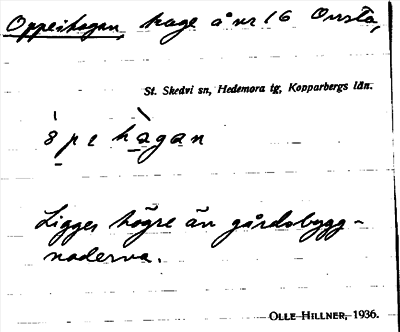 Oppeihagan, hage å nr 16 Onsta,
St. Skedvi sn, Hedemora tg, Kopparbergs län.
hagan
Ligger högre än gårdsbygg-
naderna.
OLLE HILLNER, 1936.